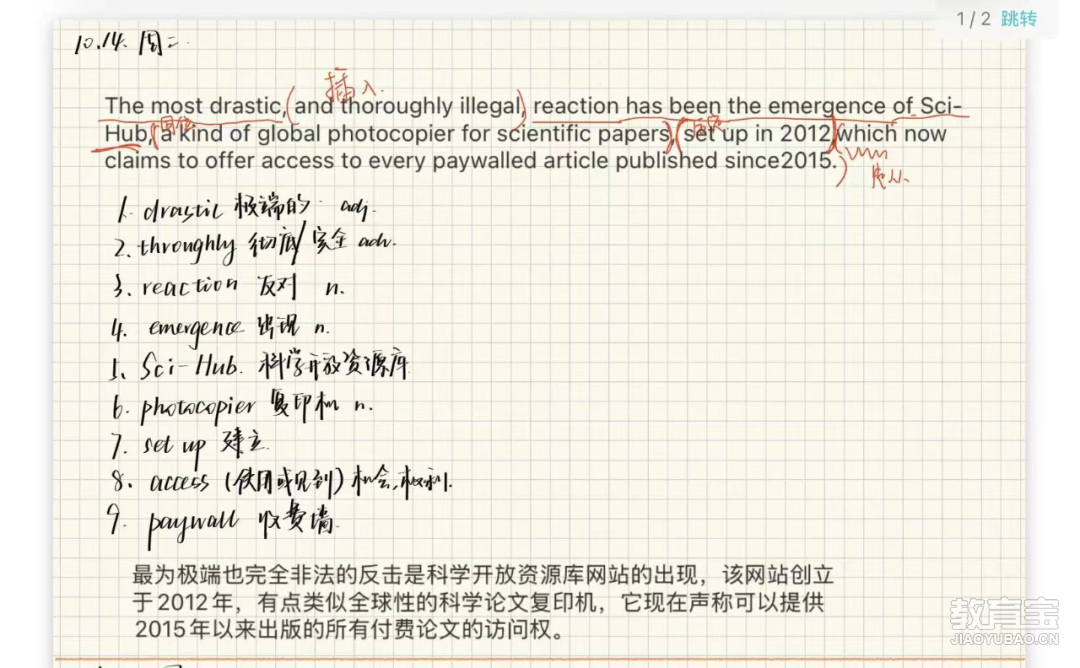 1/2 跳转
10.14. 周二
插入
The most drastic, (and thoroughly illegal), reaction has been the emergence of Sci-
同位 后定
Hub, (a kind of global photocopier for scientific papers), (set up in 2012) which now
claims to offer access to every paywalled article published since2015.)
定从
1. drastic 极端的 adj.
2. throughly 彻底/完全 adv.
3. reaction 反对 n.
4. emergence 出现 n.
5. Sci-Hub. 科学开放资源库
6. photocopier 复印机 n.
7. set up 建立
8. access (使用或见到) 机会,权利.
9. paywall 收费墙
最为极端也完全非法的反击是科学开放资源库网站的出现，该网站创立
于2012年，有点类似全球性的科学论文复印机，它现在声称可以提供
2015年以来出版的所有付费论文的访问权。
教育宝
JIAOYUBAO.CN